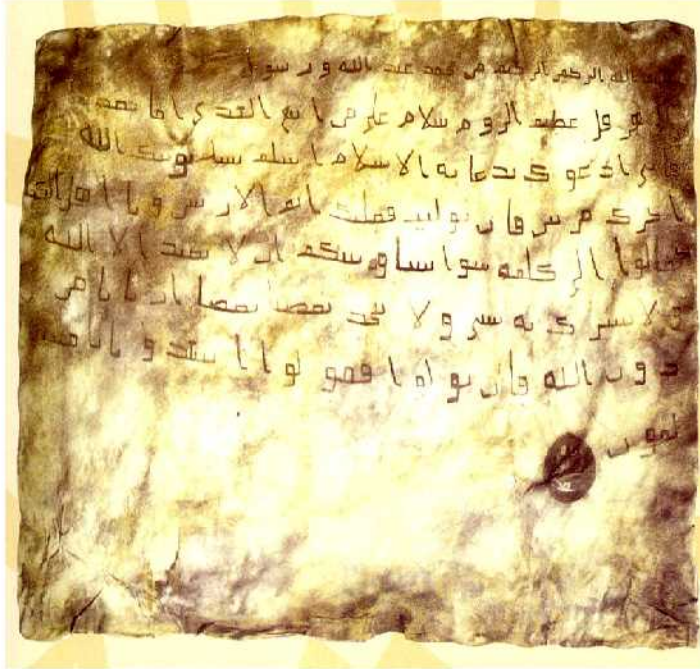 بسم الله الرحمن الرحيم من محمد عبد الله ورسوله
إلى هرقل عظيم الروم سلام على من اتبع الهدى أما بعد
فإني أدعوك بدعاية الإسلام أسلم تسلم يؤتك الله
أجرك مرتين فإن توليت فعليك إثم الأريسيين ويا أهل الكتاب
تعالوا إلى كلمة سواء بيننا وبينكم أن لا نعبد إلا الله
ولا نشرك به شيئا ولا يتخذ بعضنا بعضا أربابا من
دون الله فإن تولوا فقولوا اشهدوا بأنا مس
لمون